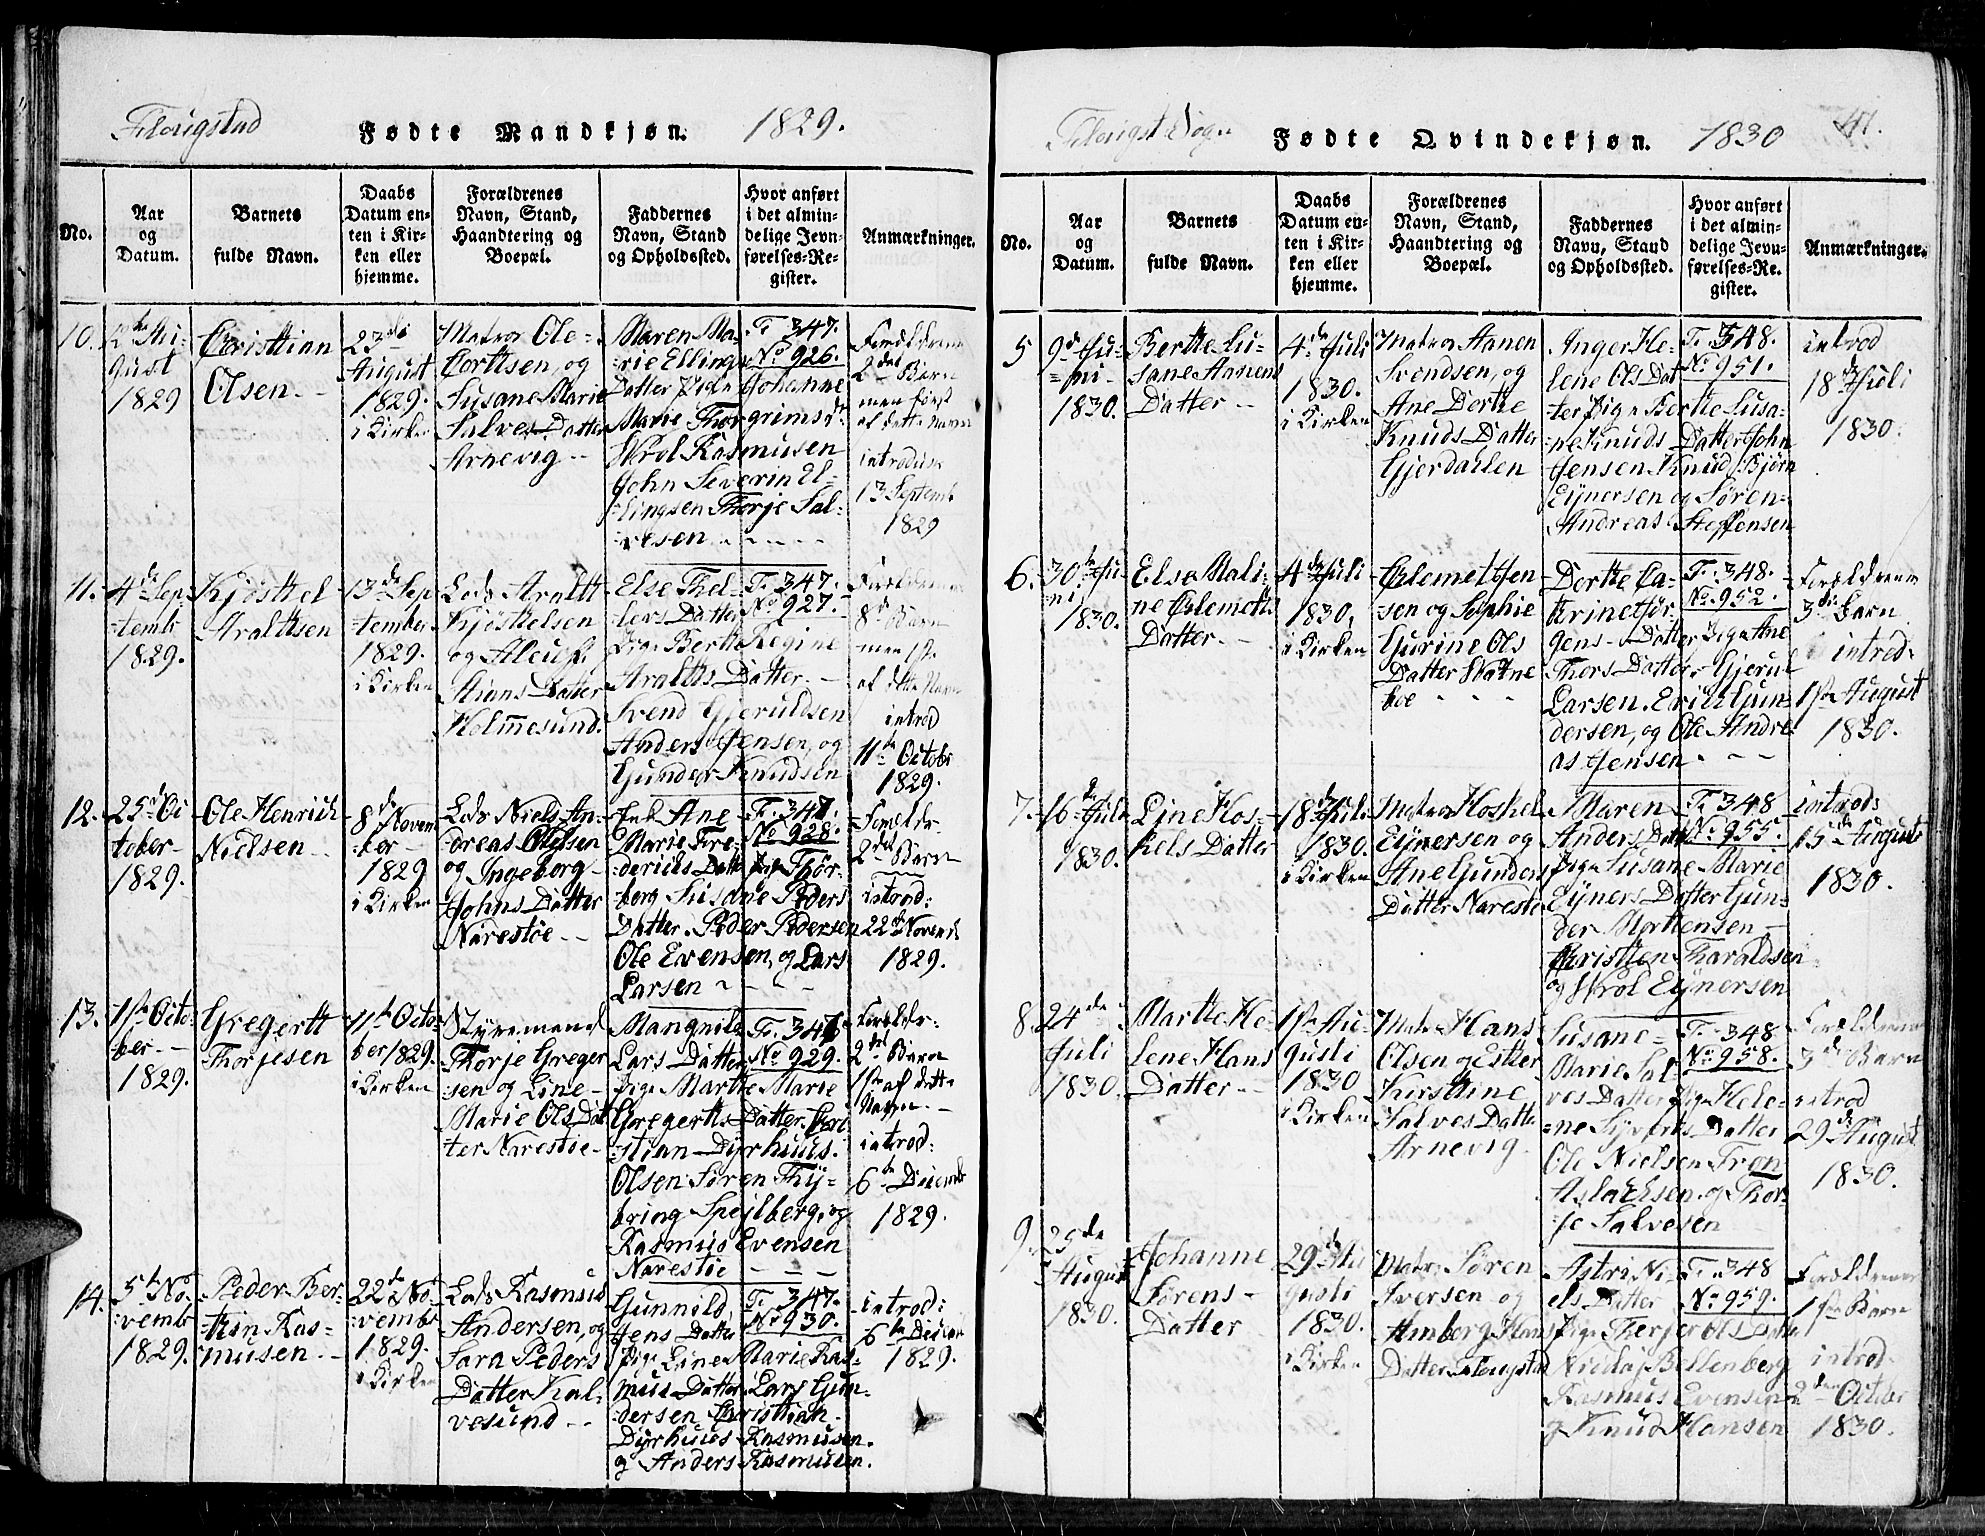 Flougstad
Fødte Mandkjøn. 1829.
No.
Aar
og
Datum.
Barnets
fulde Navn.
Daabs
Datum en-
ten i Kir-
ken eller
hjemme.
Forældrenes
Navn, Stand,
Haandtering og
Boepæl.
Faddernes
Navn, Stand
og Opholdssted.
Hvor anført
i det almin-
delige Jevn-
førelses-Re-
gister.
Anmærkninger.
10.
gust
1829
Christian
Olsen
23de
August
1829.
i Kirken
Matros Ole
Corttsen, og
Susane Marie
Salves Datter
Arnevig
Maren Ma-
rie Ellings
Datter Pige Johanne
Marie Thorgrims dr
Skrol Rasmusen
John Severin El-
lingsen Thorje Sal-
vesen
F. 347.
No 926.
Forældrenes
2det Barn
men først
af dette Navn
introduc
13 Septemb
1829
11.
4de Sep
temb
1829.
Kjøsttel
Araldtsen
13de Sep
tember
1829.
i Kirken
Lods Araldt
Kjøsttelsen
og
Stians Datter
Holmesund.
Else Thel-
lers Datter
Pige Berthe Regine
Araldts Datter
Svend Gjeruldsen
Anders Jensen, og
Gunder Knudsen
F. 347.
No 927.
Forældrenes
8de Barn
men 1ste
af dette Navn
introd
11te October
1829.
12.
25de Oc
tober
1829.
Ole Henrich
Nielsen
8de Novem
ber
1829
i Kirken
Lods Niels An-
dreas Olsen
og Ingeborg
Johns Datter
Narestøe
Enk Ane
Marie Fre-
dericks Datt Pige Thor-
berg Susane Peders
Datter. Peder Pedersen
Ole Evensen, og Lars
Larsen
F. 347
No 928.
Forældr
2det Barn
introd:
22de Novemb
1829.
13.
1ste Octo-
ber
1829.
Gregertt
Thorjesen
11te Octo
ber 1829.
i Kirken
Styremand
Thorje Greger
sen og Line
Marie Ols Dat
ter Narestøe
Mangnild
Lars Datter
Pige Marthe Marie
Gregertts Datter. Chri
stian Dyrhuus.
Olsen Søren Thy-
bring Spejlberg, og
Rasmus Evensen
Narestøe
F. 347
No 929.
Forældr:
2det Barn
1ste af dette
Navn.
introd:
6te Decemb
1829.
14.
5te No
vembr
1829.
Peder Ber-
Ras-
musen
22de No
vembr
1829.
i Kirken
Lods Rasmus
Andersen, og
Sara Peders
Datter Kal-
vesund
Gunnild
Jens Datter
Pige Line Marie Ras-
mus Datter. Lars Gun-
dersen Christian
Dyrhuus Rasmusen.
og Anders Rasmusen.
F. 347.
No 930.
introd:
6te Decemb
1829.
Flougst Sogn
Fødte Qvindekjøn. 1830
41.
No.
Aar
og
Datum.
Barnets
fulde Navn.
Daabs
Datum en-
ten i Kir-
ken eller
hjemme.
Forældrenes
Navn, Stand,
Haandtering og
Boepæl.
Faddernes
Navn, Stand
og Opholdssted.
Hvor anført
i det almin-
delige Jevn-
førelses-Re-
gister.
Anmærkninger.
5
9de Ju-
ni
1830.
Berthe Su-
sane Aanens
Datter
4de Juli
1830.
i Kirken
Matros Aanen
Svendsen, og
Ane Dorthe
Knuds Datter
Gjerdalen
Anger He-
lene Ols Dat
ter Pige Berthe Susa-
ne Knuds Datter John
Jensen Knud Bjørn
Eijnersen og Søren
Andreas Steffensen
F. 348.
No 951.
introd
18de Juli
1830.
6.
30te Ju-
ni
1830.
Else Mali-
ne Clemetts
Datter
4de Juli
1830,
i Kirken
Clemet Jen
sen og Sophie
Gurine Ols
Datter
Dorthe Ca-
thrine Jør-
gens Datter Pige Ane
Thors Datter Gjerul
Larsen. Erich Gun-
dersen, og Ole Andre
as Jensen
F. 348.
No. 952.
Forældrenes
3die Barn
introd:
1ste August
1830.
7.
16de Juli
1830.
Line Hos-
kels Datter
18de Juli
1830.
i Kirken
Matros Hoskel
Eijnersen og
Ane Gunders
Datter Narestø
Maren
Anders Datt
Pige Susane Marie
Eijners Datter Gun-
der Morttensen
Christen Tharaldsen
og Skrol Eijnersen
F. 348
No. 955.
introd:
15de August
1830.
8.
24de
Juli
1830.
Marthe He-
lene Hans
Datter
1ste Au-
gusti
1830
i Kirken
Matr. Hans
Olsen og Esther
Kirsttine
Salves Datter
Arnevig
Susane
Marie Sal
ves Datter Pige Hele-
ne Syverts Datter
Ole Nielsen Tron
Aslachsen. og Thor-
je Salvesen
F. 348
No 958.
Forældrenes
3die Barn
introd
29de August
1830.
9.
25de
August
1830.
Johanne
Sørens
Datter
29de Au
gusti
1830.
i Kirken
Matr. Søren
Iversen og
Amborg Hans
Datter Flougstad
Astri Ni-
els Datter
Pige Therjer Ols Datter
Nicolaj Bellenberg
Rasmus Evensen
og Knud Hansen
F. 348
No. 959.
Forældrenes
1ste Barn
introd
2den October
1830.